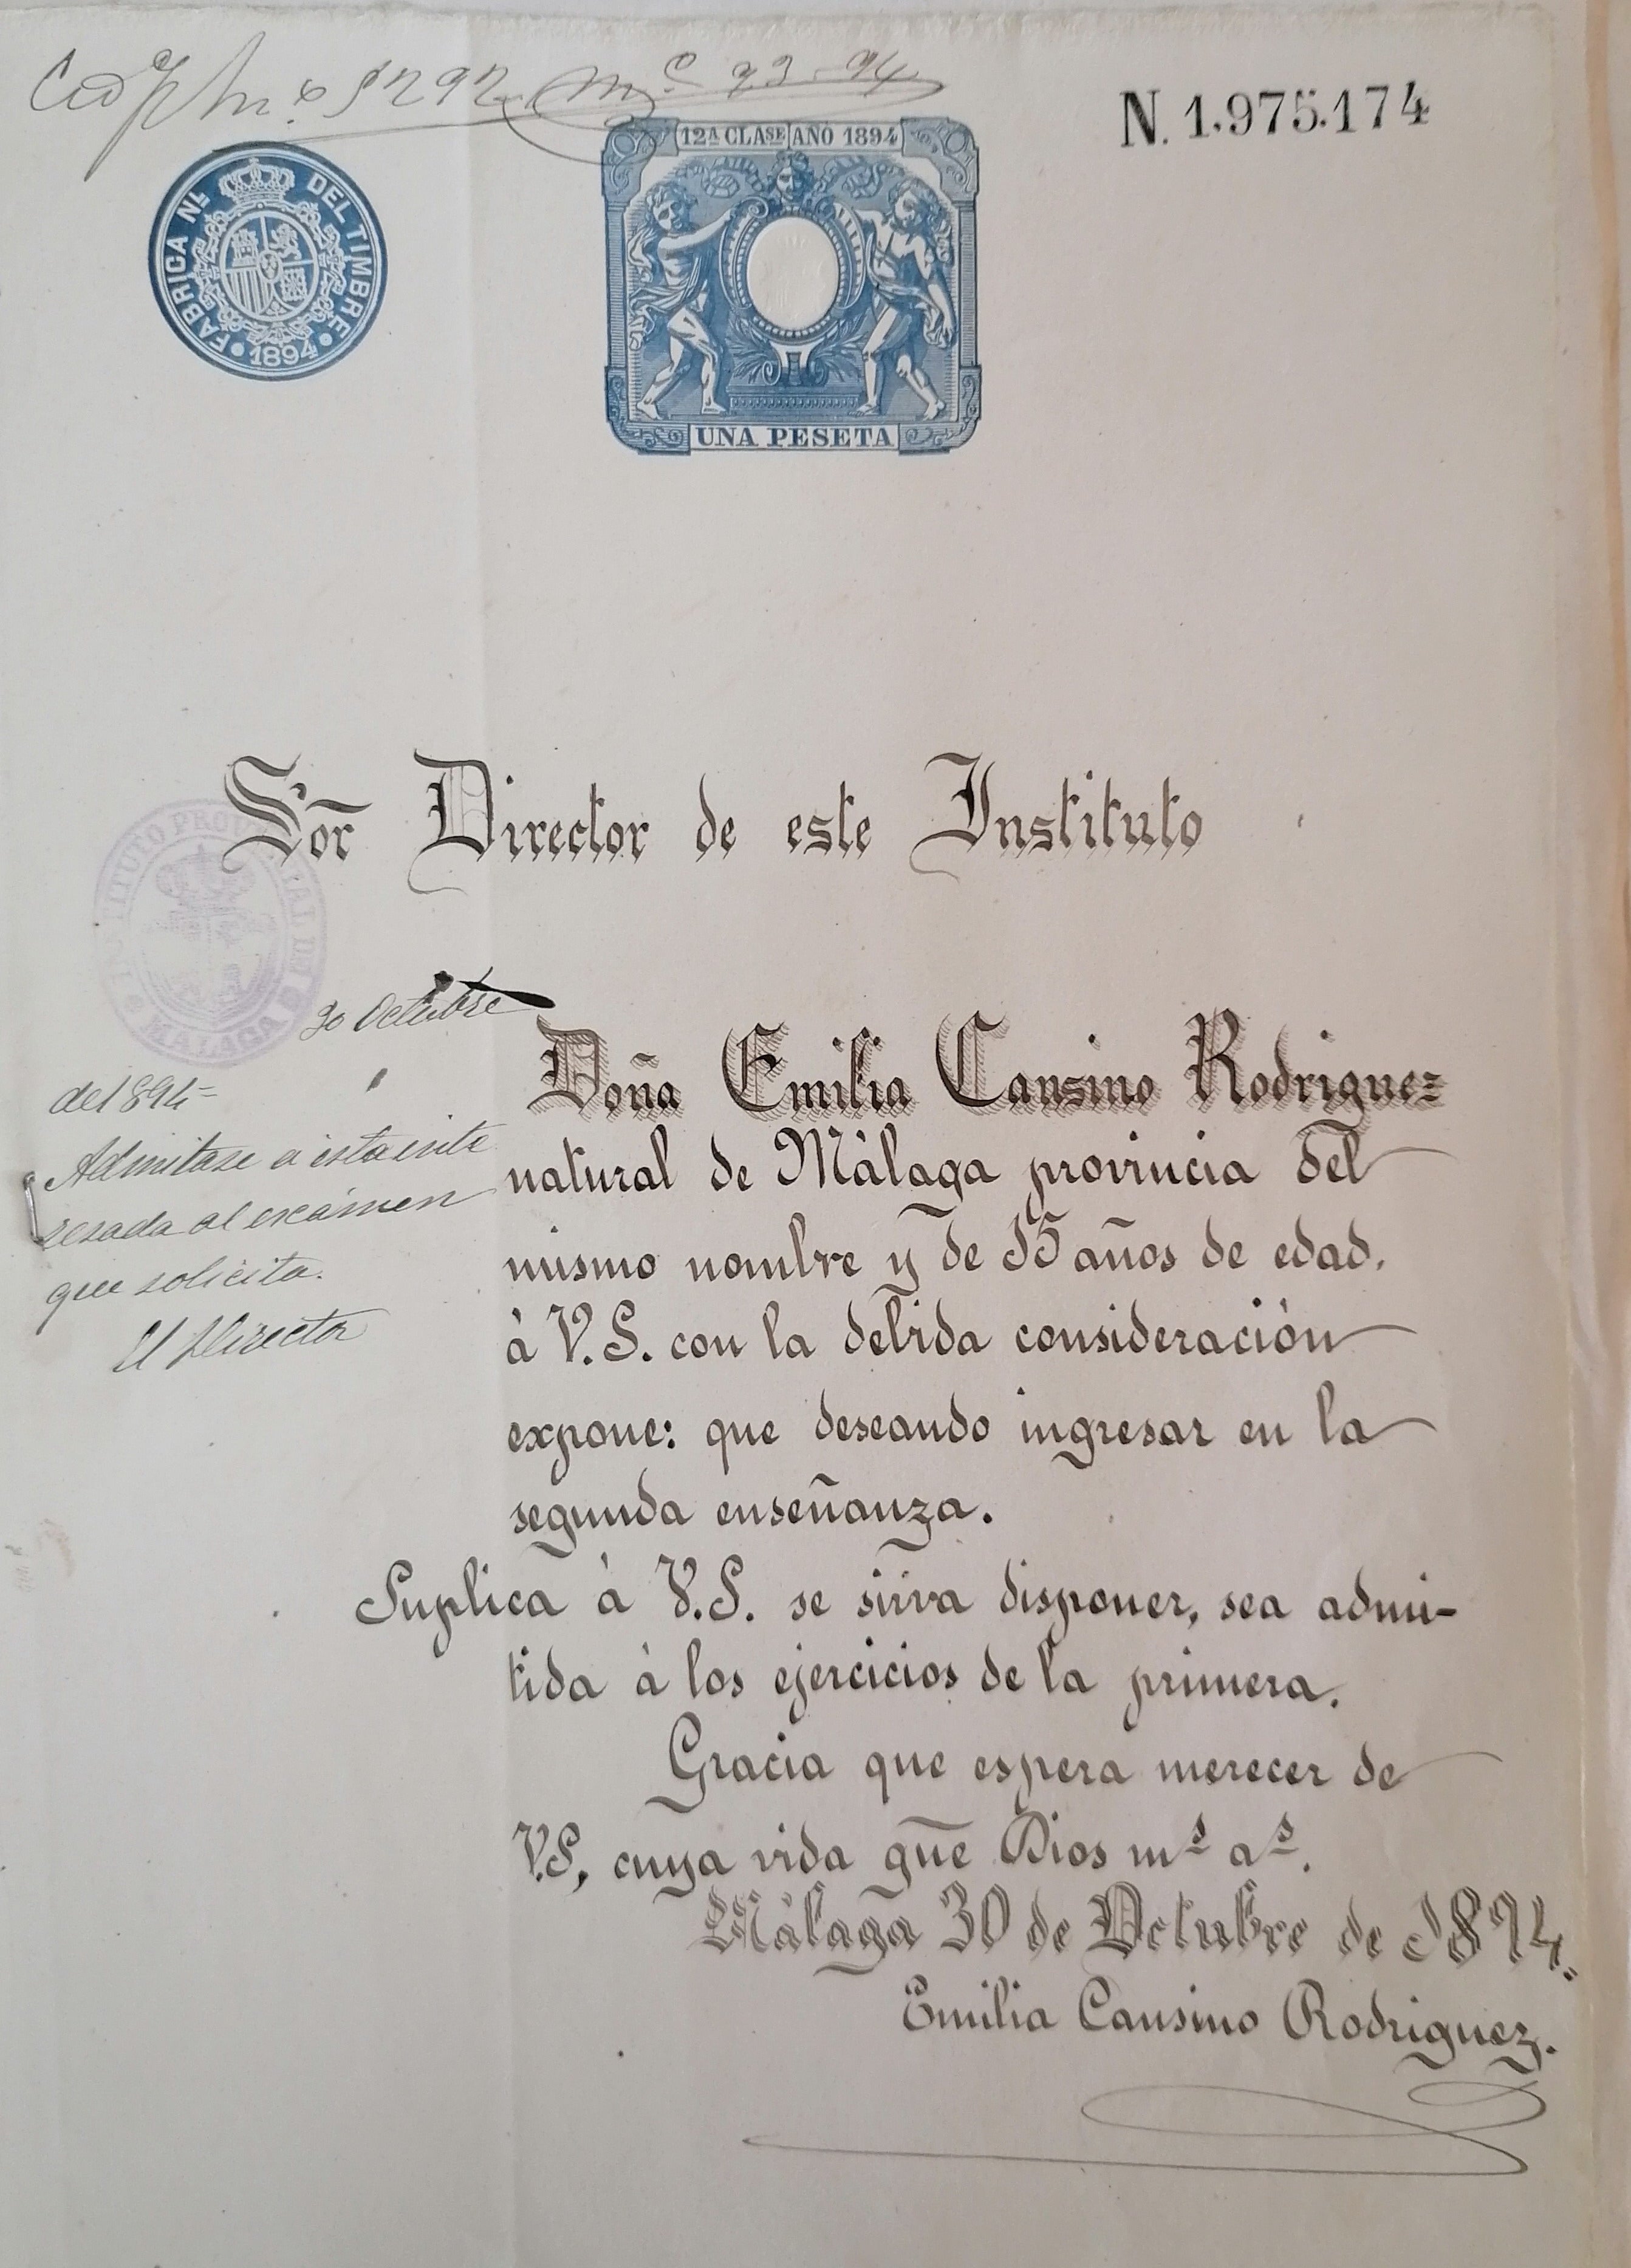 N. 1.975.174
FABRICA NL DEL TIMBRE
1894
12ª CLASE AÑO 1894
UNA PESETA
Sor Director de este Instituto
INSTITUTO PROVINCIAL DE MALAGA
30 Octubre
de 1894=
Admitase a esta inte
resada al exámen
que solicita.
El Director
Doña Emilia Cansino Rodriguez
natural de Màlaga provincia del
mismo nombre y de 15 años de edad.
à V.S. con la debida consideraciòn
expone: que deseando ingresar en la
segunda enseñanza.
Suplica à V.S. se sirva disponer, sea admi-
tida à los ejercicios de la primera.
Gracia que espera merecer de
V.S, cuya vida gue Dios ms as.
Màlaga 30 de Octubre de 1894.=
Emilia Cansino Rodriguez.